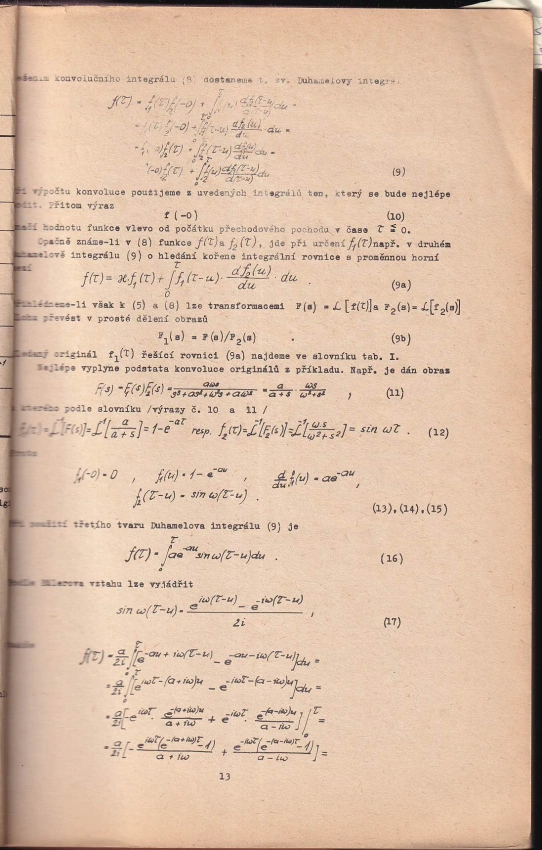 konvolučního integrálu (8) dostaneme t. zv. Duhamelovy integrá
f(τ) =
(9)
při výpočtu konvoluce použijeme z uvedených integrálů ten, který se bude nejlépe
Přitom výraz
f (-0) (10)
hodnotu funkce vlevo od počátku přechodového pochodu v čase τ ≦ 0.
Opačně známe-li v (8) funkce f(τ) a f₂(τ), jde při určení f₁(τ) např. v druhém
integrálu (9) o hledání kořene integrální rovnice s proměnnou horní
f(τ) = ϰ.f₁(τ) + ∫₀^τ f₁(τ-u) · df₂(u)/du · du . (9a)
však k (5) a (8) lze transformacemi F(s) = L[f(τ)] a F₂(s) = L[f₂(s)]
převést v prosté dělení obrazů
F₁(s) = F(s)/F₂(s) . (9b)
originál f₁(τ) řešící rovnici (9a) najdeme ve slovníku tab. I.
Nejlépe vyplyne podstata konvoluce originálů z příkladu. Např. je dán obraz
F(s) = F₁(s)F₂(s) = aωs/(s³+as²+ω²s+aω²) = a/(a+s) · ωs/(ω²+s²) , (11)
kterého podle slovníku /výrazy č. 10 a 11 /
f₁(τ) = L⁻¹[F₁(s)] = L⁻¹[a/(a+s)] = 1-e^-aτ resp. f₂(τ) = L⁻¹[F₂(s)] = L⁻¹[ω.s/(ω²+s²)] = sin ωτ . (12)
f₁(-0) = 0 , f₁(u) = 1 - e^-au , d/du f₁(u) = ae^-au ,
f₂(τ-u) = sin ω(τ-u) .
(13),(14),(15)
při použití třetího tvaru Duhamelova integrálu (9) je
f(τ) = ∫₀^τ ae^-au sin ω(τ-u)du . (16)
Eulerova vztahu lze vyjádřit
sin ω(τ-u) = (e^iω(τ-u) - e^-iω(τ-u))/2i , (17)
f(τ) = a/2i ∫₀^τ [e^-au + iω(τ-u) - e^-au - iω(τ-u)]du =
= a/2i ∫₀^τ [e^iωτ-(a+iω)u - e^-iωτ-(a-iω)u]du =
= a/2i [-e^iωτ · e^-(a+iω)u/(a+iω) + e^-iωτ · e^-(a-iω)u/(a-iω)] |₀^τ =
= a/2i [- e^iωτ(e^-(a+iω)τ - 1)/(a+iω) + e^-iωτ(e^-(a-iω)τ - 1)/(a-iω)] =
13